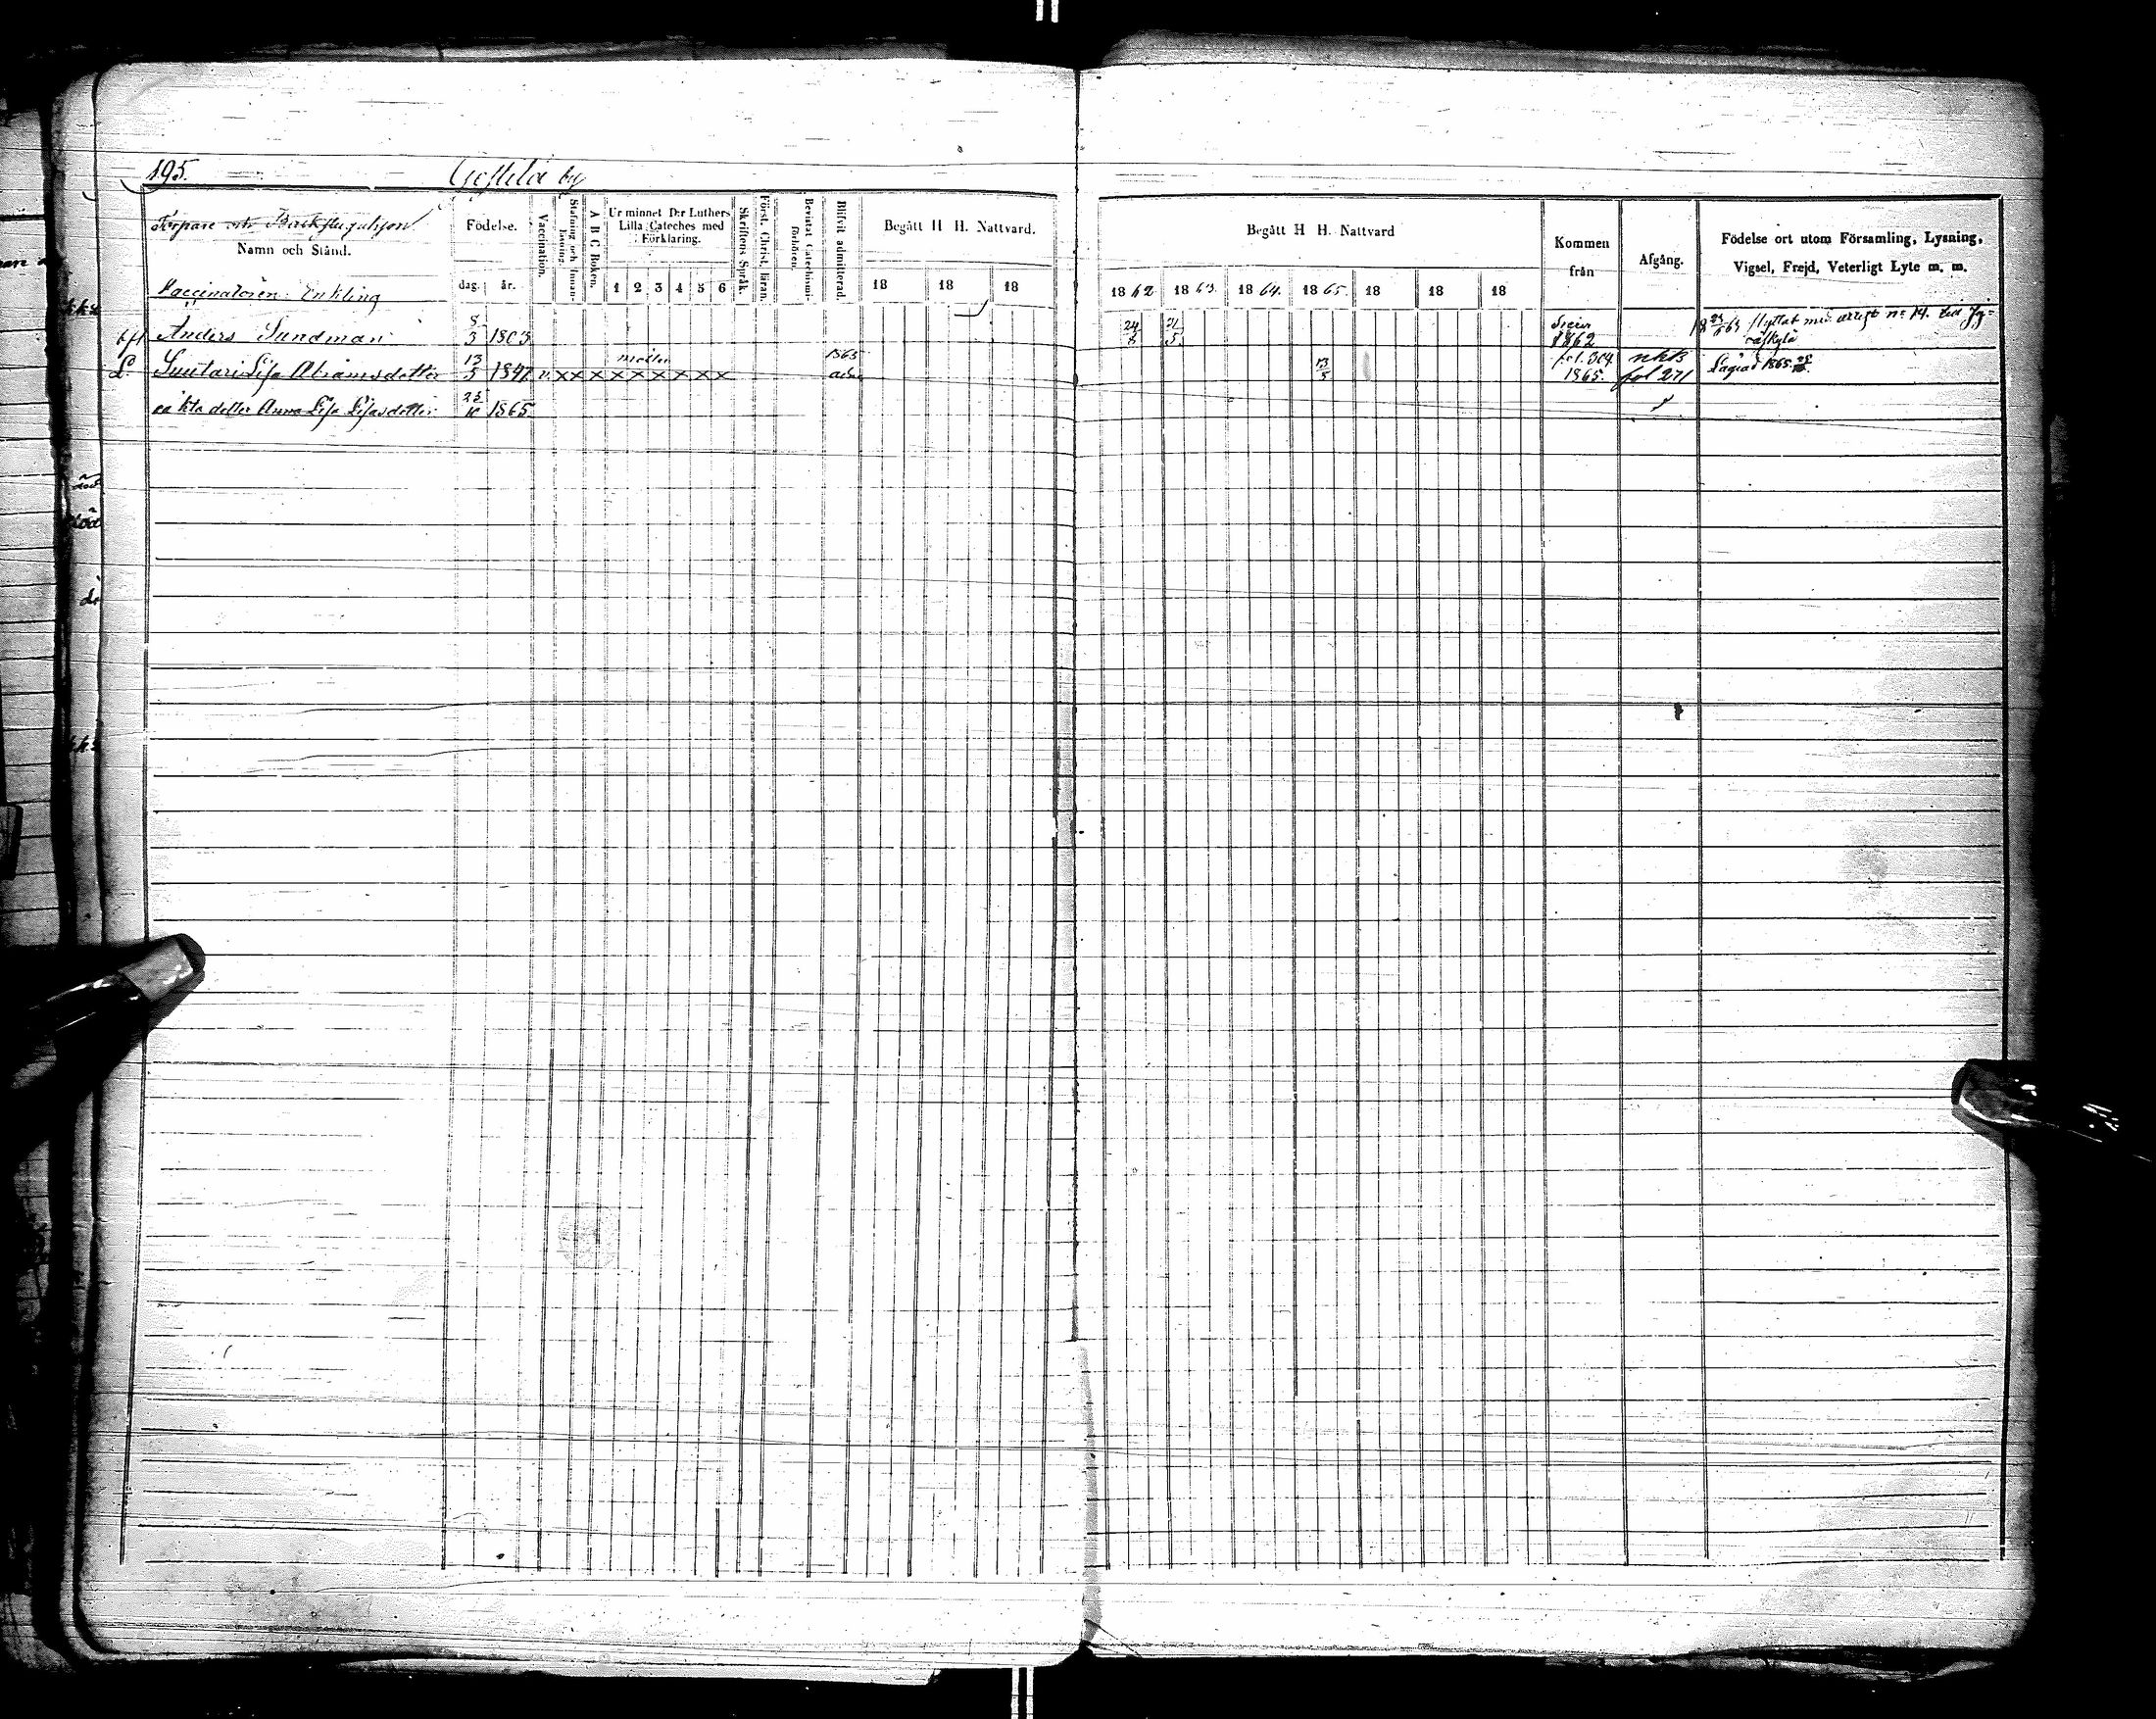 195. by
Torpare och
Namn och Stånd.
Födelse.
dag. år.
Vaccination.
Stafning och Innanläsning.
A B C Boken.
Ur minnet D:r Luthers Lilla Cateches med Förklaring.
1 2 3 4 5 6
Skriftens Språk.
Först. Christ. läran.
Bevistat Catechismiförhören.
Blifvit admitterad.
Begått H H. Nattvard.
18 18 18
Begått H H. Nattvard
1862 1863. 1864. 1865. 18 18 18
Kommen från
Afgång.
Födelse ort utom Församling, Lysning,
Vigsel, Frejd, Veterligt Lyte m. m.
Vaccinatören: Enkling
Anders Sundman 8/3 1803 24/8 21/5 1862 Flyttat med n:o 14. till
Lisa Abramsdotter 13/5 1847 v. x x x x x x x x x 1863 13/5 fol. 304. 1865. fol 271 1865.
oäkta dotter Anna Lisa Lisasdotter 25/10 1865